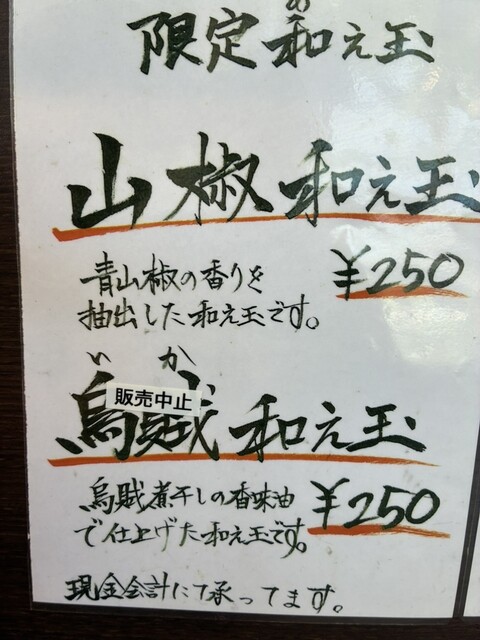 限定和え玉
山椒和え玉
青山椒の香りを
¥250
抽出した和え玉です。
いか
販売中止
烏賊和え玉
烏賊煮干しの香味油
¥250
で仕上げた和え玉です。
現金会計にて承ってます。